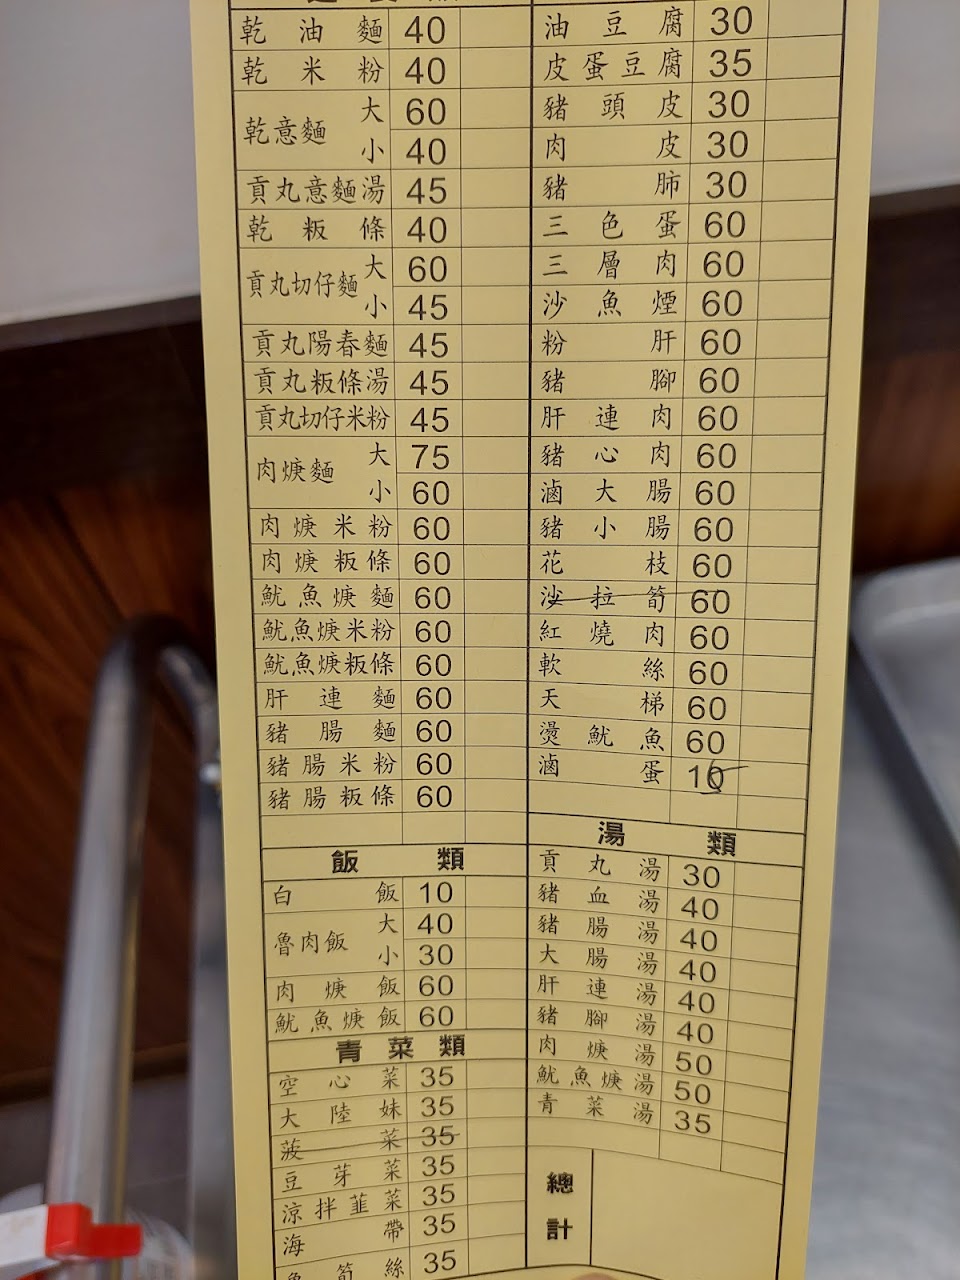 乾油麵 40
乾米粉 40
乾意麵 大 60
小 40
貢丸意麵湯 45
乾粄條 40
貢丸切仔麵 大 60
小 45
貢丸陽春麵 45
貢丸粄條湯 45
貢丸切仔米粉 45
肉焿麵 大 75
小 60
肉焿米粉 60
肉焿粄條 60
魷魚焿麵 60
魷魚焿米粉 60
魷魚焿粄條 60
肝連麵 60
豬腸麵 60
豬腸米粉 60
豬腸粄條 60
飯類
白飯 10
魯肉飯 大 40
小 30
肉焿飯 60
魷魚焿飯 60
青菜類
空心菜 35
大陸妹 35
菠菜 35
豆芽菜 35
涼拌韮菜 35
海帶 35
筍絲 35
油豆腐 30
皮蛋豆腐 35
豬頭皮 30
肉皮 30
豬肺 30
三色蛋 60
三層肉 60
沙魚煙 60
粉肝 60
豬腳 60
肝連肉 60
豬心肉 60
滷大腸 60
豬小腸 60
花枝 60
沙拉筍 60
紅燒肉 60
軟絲 60
天梯 60
燙魷魚 60
滷蛋 10
湯類
貢丸湯 30
豬血湯 40
豬腸湯 40
大腸湯 40
肝連湯 40
豬腳湯 40
肉焿湯 50
魷魚焿湯 50
青菜湯 35
總計